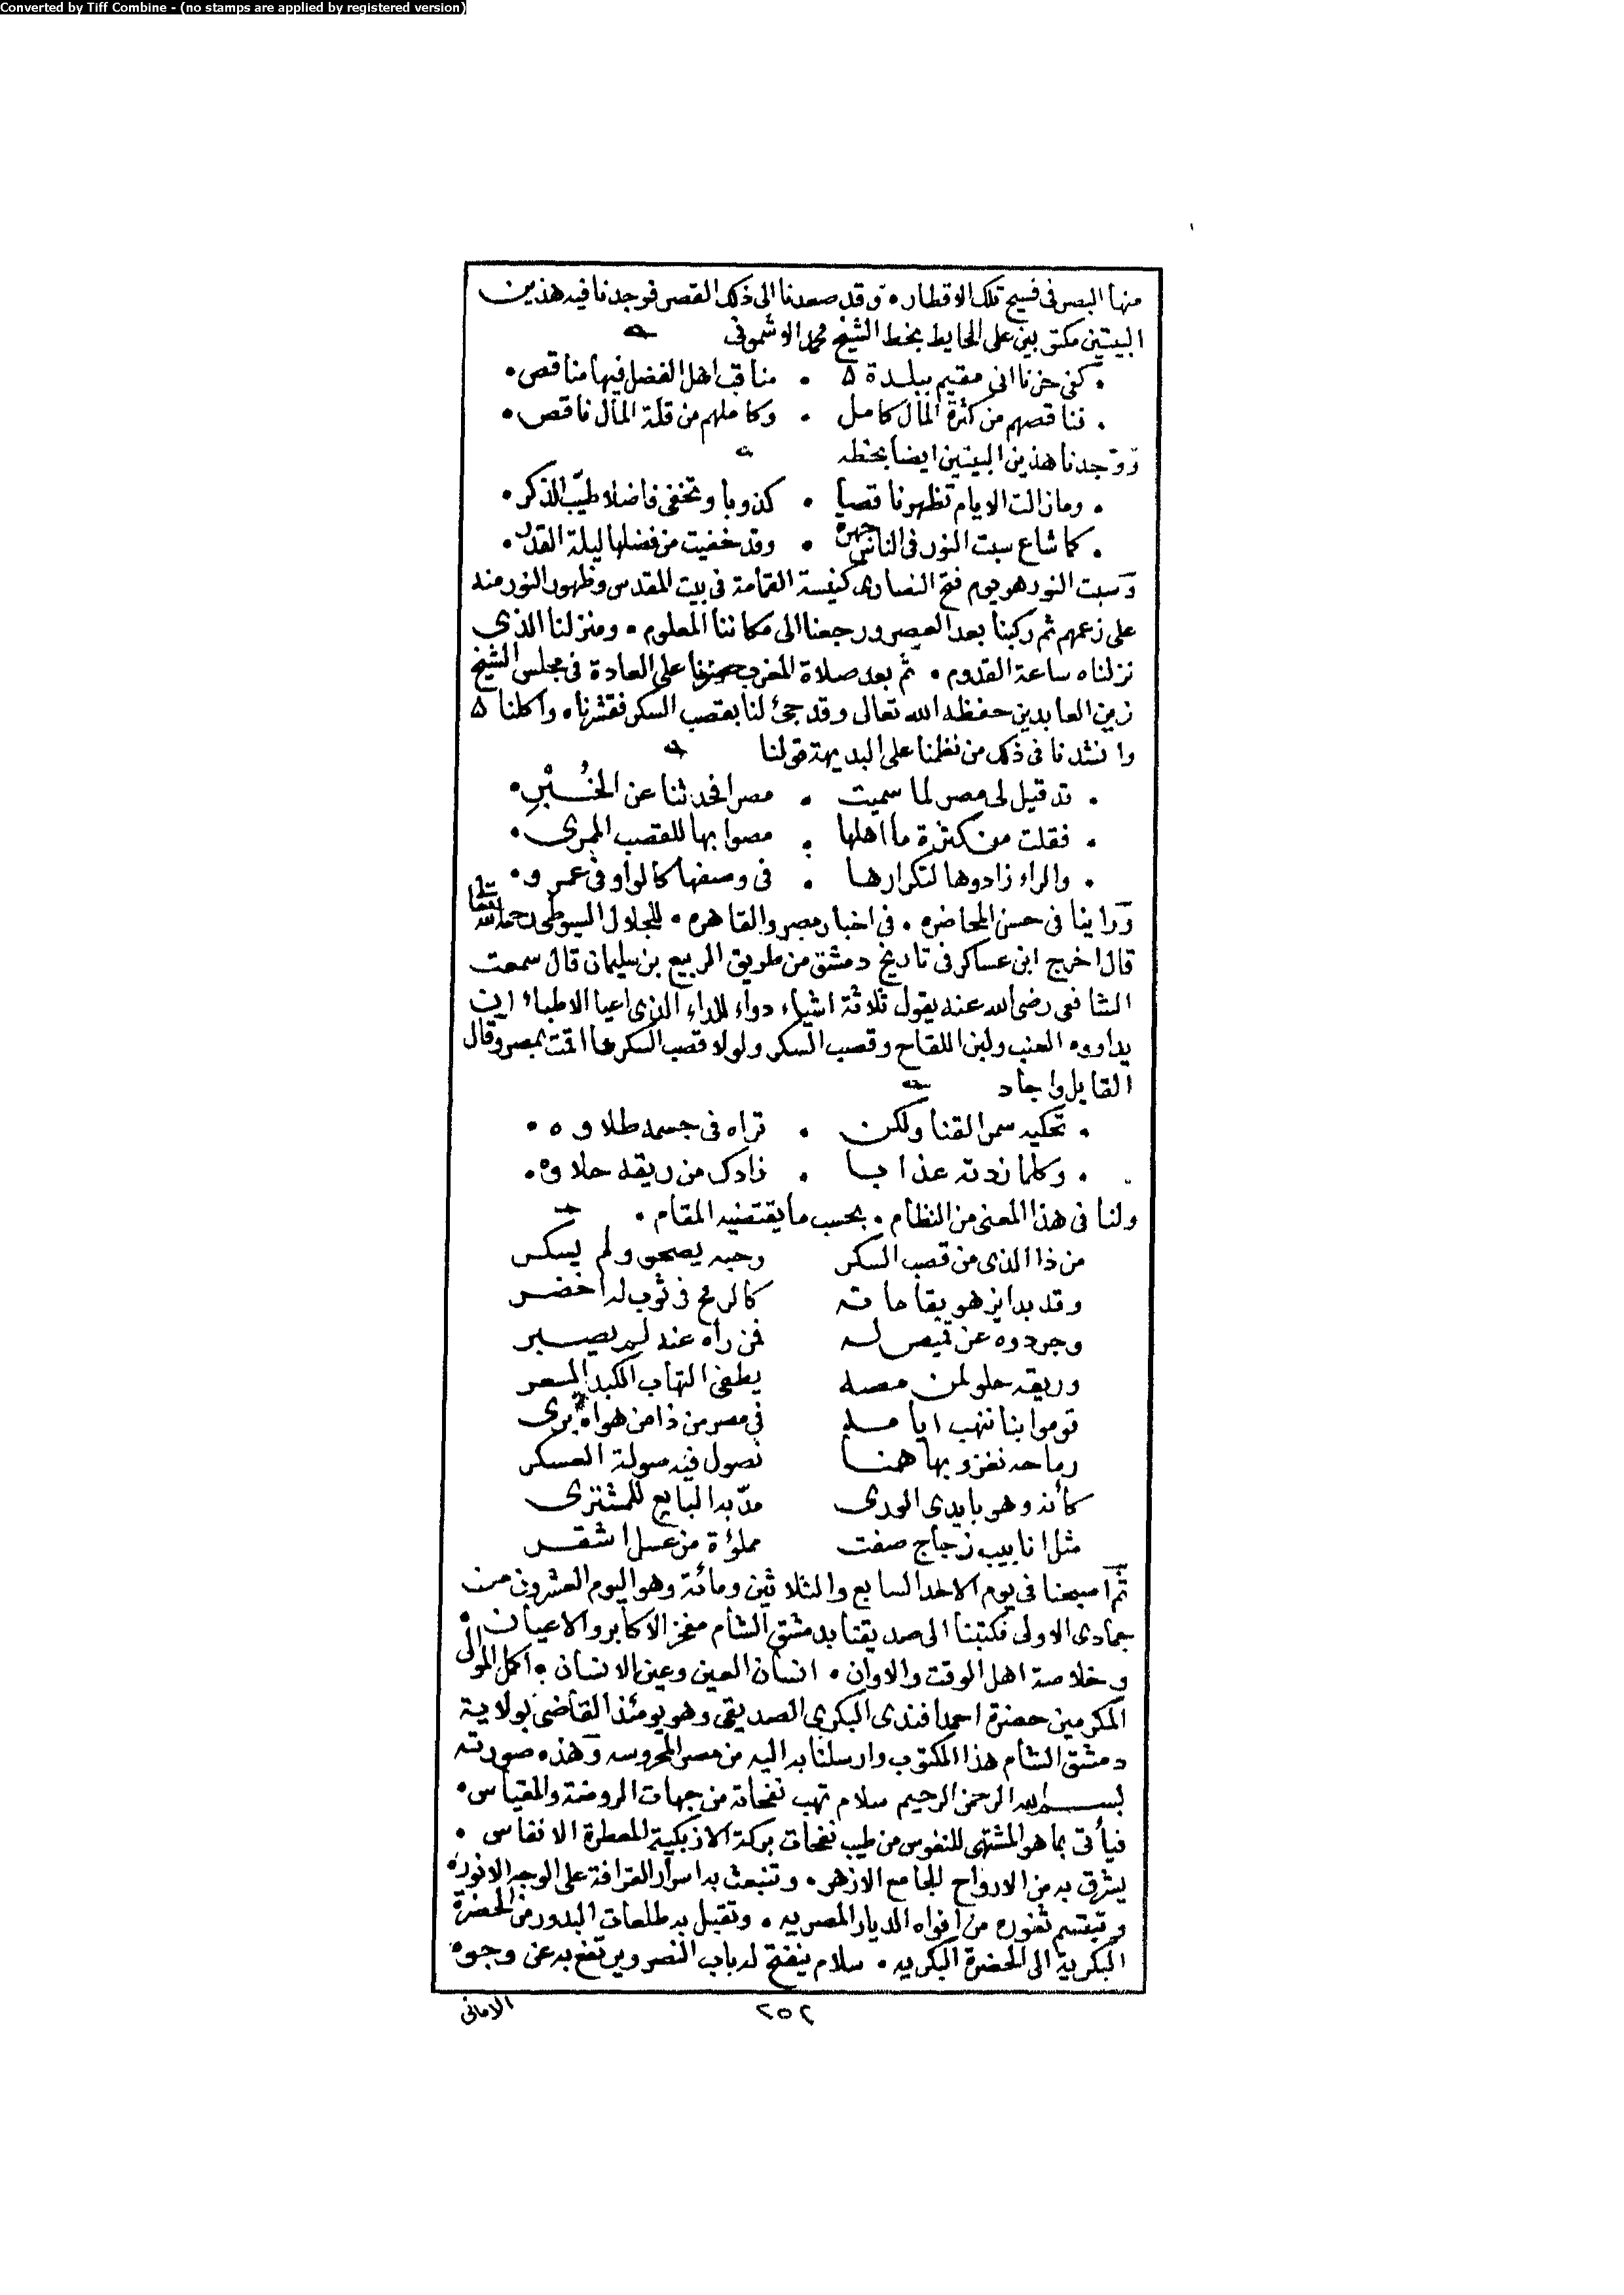 Converted by Tiff Combine - (no stamps are applied by registered version)
منها البصر فى فسيح تلك الاقطار ه وقد صعدنا الى ذلك القصر فوجدنا فيه هذين
البيتين مكتوبين على الحايط بخط الشيخ محمد الاشمونى
• كفى حزنا انى مقيم ببلدة • مناقب اهل الفضل فيها مناقص •
• فناقصهم من كثرة المال كامل • وكاملهم من قلة المال ناقص •
ووجدنا هذين البيتين ايضا بخطه
• ومازالت الايام تظهر ناقصا • كذوبا وتخفى فاضلا طيب الذكر •
• كما شاع سبت النور فى الناس جهرة • وقد خفيت من فضلها ليلة القدر •
وسبت النور هو يوم فتح النصارى كنيسة القمامة فى بيت المقدس وظهور النور منه
على زعمهم ثم ركبنا بعد العصر ورجعنا الى مكاننا المعلوم • ومنزلنا الذى
نزلناه ساعة القدوم • ثم بعد صلاة المغرب حضرنا على العادة فى مجلس الشيخ
زين العابدين حفظه الله تعالى وقد جئ لنا بقصب السكر فقشرناه واكلنا ه
وانشدنا فى ذلك من نظمنا على البديهة قولنا
• قد قيل لى مصر لما سميت • مصرا فحدثنا عن الخُبْرِ •
• فقلت من كثرة ما اهلها • مصوا بها للقصب المرى •
• والراء زادوها لتكرارها • فى وصفها كالواو فى عمرو •
وراينا فى حسن المحاضره • فى اخبار مصر والقاهره • للجلال السيوطى رحمه الله تعالى
قال اخرج ابن عساكر فى تاريخ دمشق من طريق الربيع بن سليمان قال سمعت
الشافعى رضى الله عنه يقول ثلاثة اشياء دواء للداء الذى اعيا الاطباء ان
يداووه العنب ولبن اللقاح وقصب السكر ولولا قصب السكر ما اقمت بمصر وقال
القايل واجاد
• تحكيه سمر القنا ولكن • تراه فى جسمه طلاوه •
• وكلما زدته عذابا • زادك من ريقه حلاوه •
ولنا فى هذا المعنى من النظام • بحسب ما يقتضيه المقام •
من ذا الذى من قصب السكر وحبه يصحو ولم يسكر
وقد بدا يزهو بقاماته كالرمح فى ثوب له اخضر
وجردوه عن قميص له فمن رآه عنه لم يصبر
وريقه حلو لمن مصه يطفى التهاب الكبد المسعر
قوموا بنا ننهب ايامه فى مصر من ذا من هواه برى
رماحه نغزو بها هنا نصول فيه صولة العسكر
كأنه وهو بايدى الورى مدّ به البايع للمشترى
مثل انابيب زجاج صفت مملوءة من عسل اشقر
ثم اصبحنا فى يوم الاحد السابع والثلاثين ومائة وهو اليوم العشرون من
جمادى الاولى فكتبنا الى صديقنا بدمشق الشأم مفخر الاكابر والاعيان •
وخلاصة اهل الوقت والاوان • انسان العين وعين الانسان • اكمل الموالى
المكرمين حضرة احمد افندى البكرى الصديقى وهو يومئذ القاضى بولاية
دمشق الشأم هذا المكتوب وارسلنا به اليه من مصر المحروسه وهذه صورته
بسم الله الرحمن الرحيم سلام تهب نفحاته من جهات الروضة والمقياس •
فيأتى بما هو المشتهى للنفوس من طيب نفحات بركة الازبكية المعطرة الانفاس •
يشرق به من الارواح الجامع الازهر • وتنبعث به اسرار القرافة على الوجه الانور •
وتبتسم ثغوره من افواه الديار المصريه • وتقبل به طلعات البدور من الحضرة
البكرية الى الحضرة البكريه • سلام ينفتح له باب النصر ويرتفع به عن وجوه
الامانى
٢٥٢